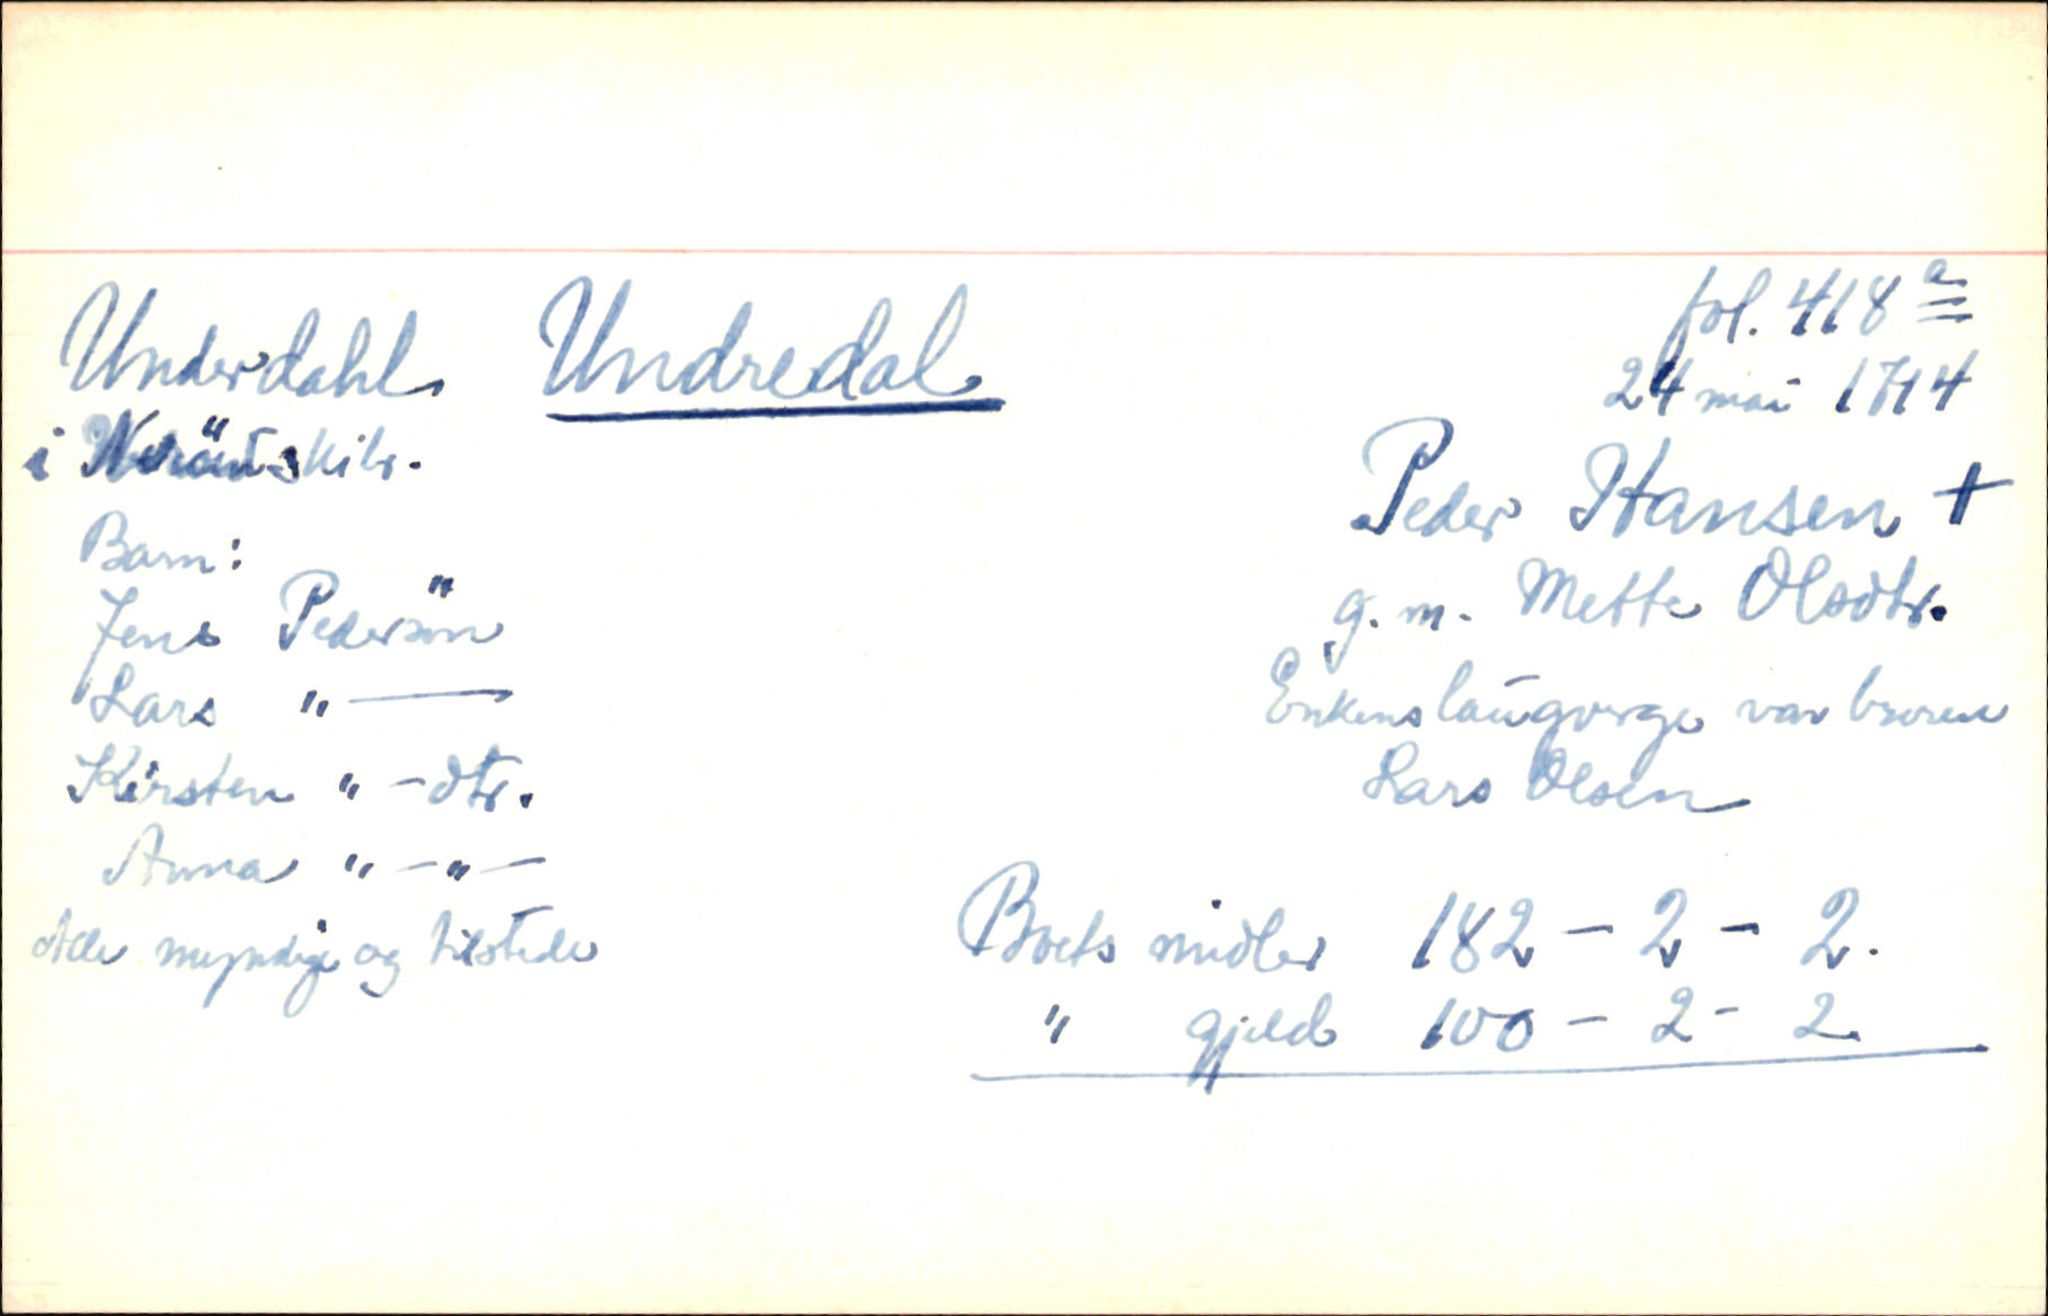 Underdahl
Undredal
fol. 418 a
24 mai 1714
i skibr.
Peder Hansen +
g. m. Mette Olsdtr.
Enkens laugverge var broren
Lars Olsen
Barn:
Jens Pedersön
Lars " —
Kirsten " - dtr.
Anna " - " -
Alle myndige og tilstede
Boets midler 182 - 2 - 2.
" gjeld 100 - 2 - 2